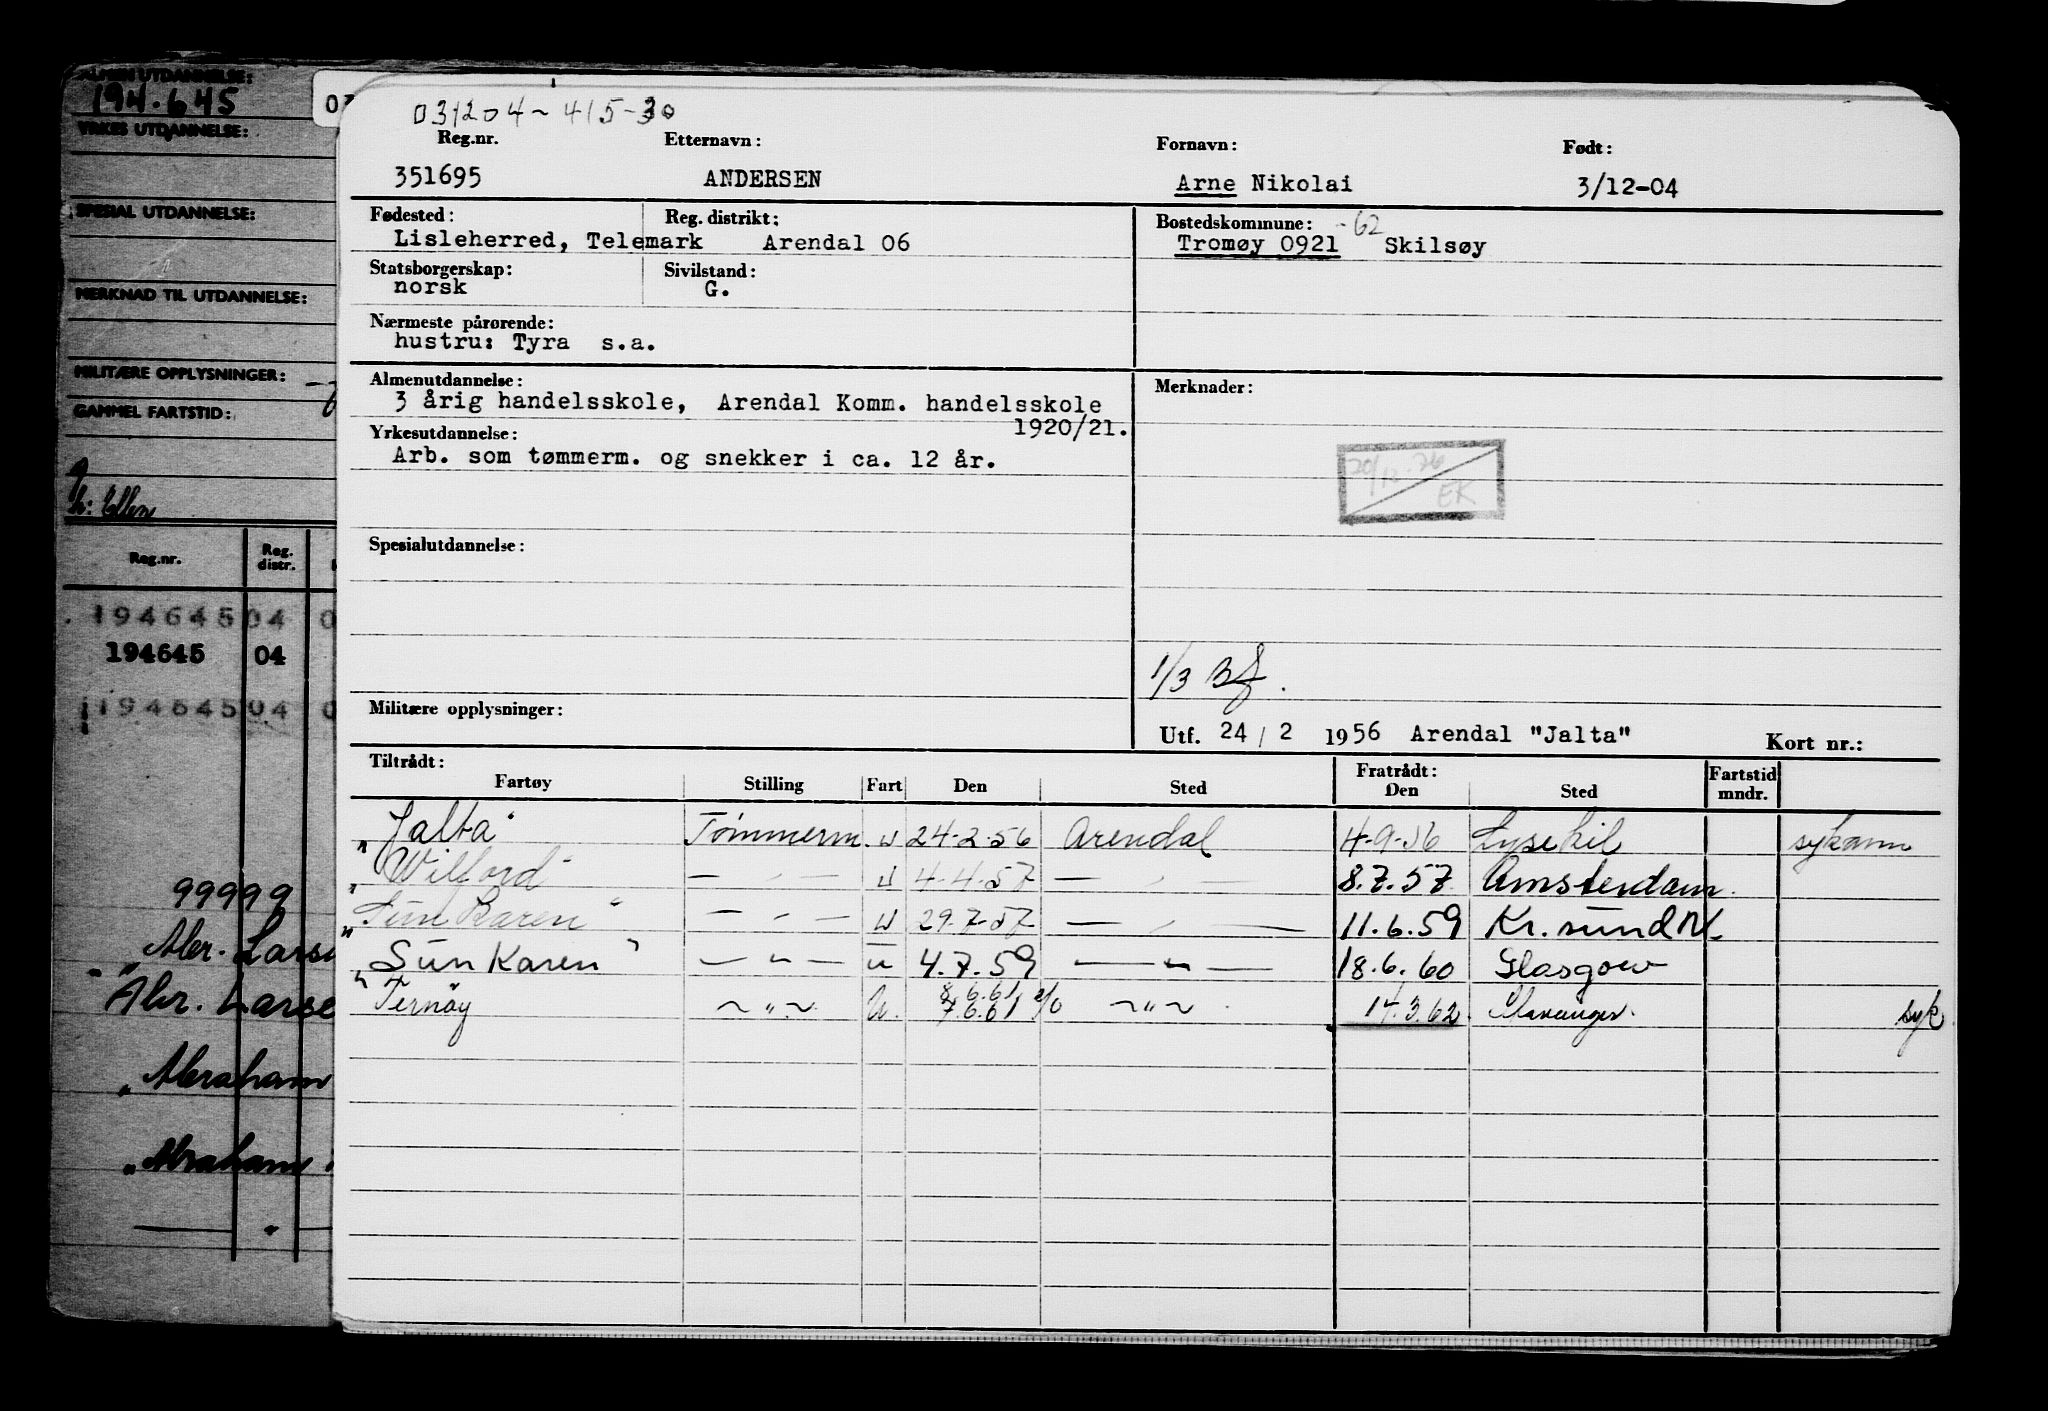 ALMEN UTDANNELSE:
194.645
YRKES UTDANNELSE:
SPESIAL UTDANNELSE:
MERKNAD TIL UTDANNELSE:
MILITÆRE OPPLYSNINGER:
GAMMEL FARTSTID:
h: Ellen
Reg.nr. Reg. distr.
194645 04 0
194645 04
194645 04 0
99999
"Abr. Larse
"Abr. Larse
"Abraham
"Abraham
— "
03
031204-415-30
Reg.nr. Etternavn: Fornavn: Født:
351695 ANDERSEN Arne Nikolai 3/12-04
Fødested: Reg. distrikt: Bostedskommune: -62
Lisleherred, Telemark Arendal 06 Tromøy 0921 Skilsøy
Statsborgerskap: Sivilstand:
norsk G.
Nærmeste pårørende:
hustru: Tyra s.a.
Almenutdannelse: Merknader:
3 årig handelsskole, Arendal Komm. handelsskole
1920/21.
Yrkesutdannelse:
Arb. som tømmerm. og snekker i ca. 12 år.
20/12-76
EK
Spesialutdannelse:
1/3
Militære opplysninger:
Utf. 24 / 2 1956 Arendal "Jalta" Kort nr.:
Tiltrådt: Fratrådt: Fartstid
Fartøy Stilling Fart Den Sted Den Sted mndr.
"Jalta" Tømmerm. u 24-2-56 Arendal 4-9-56 Lysekil sykdom
"Wilford" — " — u 4-4-57 — " — 8.7.57 Amsterdam.
"Sun Karen" — " — u 29-7-57 — " — 11.6.59 Kr.sund N.
"Sun Karen" — " — u 4.7.59 — " — 18.6.60 Glasgow
"Ternøy ~ " ~ U. 8.6.61
7.6.61 ~ " ~ 14.3.62 Stavanger. syk